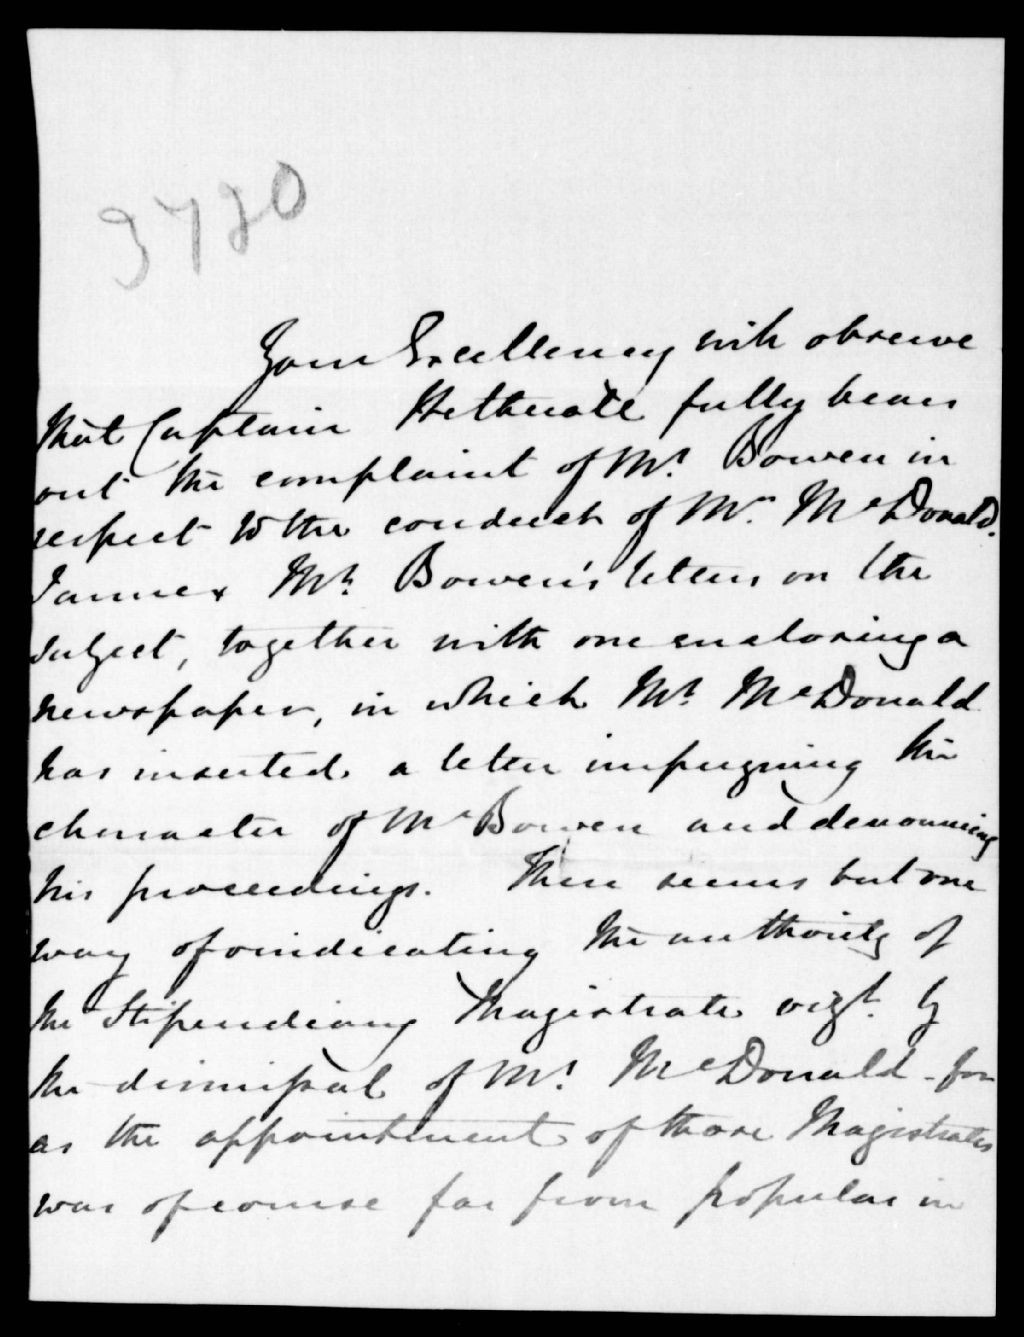 3720
Your Excellency will observe
that Captain Hethcote fully bears
out the complaint of Mr. Bowen in
respect to the conduct of Mr. McDonald.
I annex Mr. Bowen's letters on the
subject, together with one enclosing a
newspaper, in which Mr. McDonald
has inserted a letter impugning the
character of Mr Bowen and denouncing
his proceedings. There seems but one
way of vindicating the authority of
the Stipendiary Magistrate vizt. by
the dismissal of Mr. McDonald - for
as the appointment of those Magistrates
was of course far from popular in